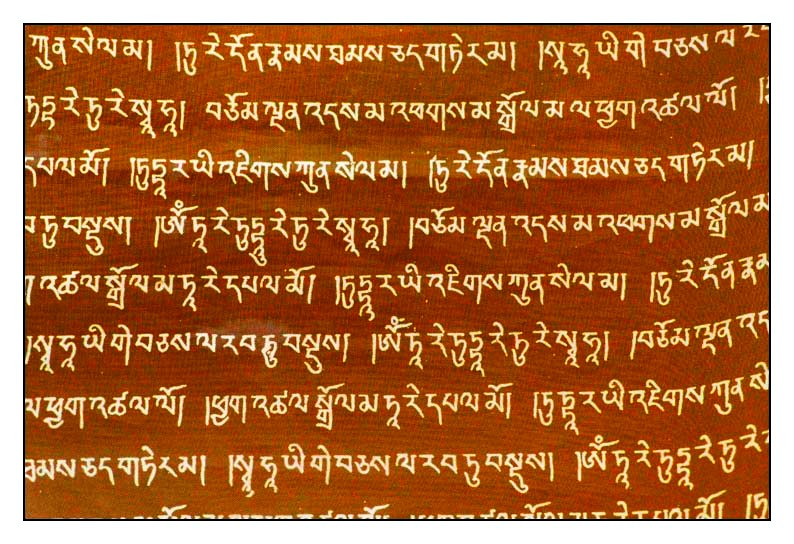 ཀུན་སེལ་མ། །ཏུ་རེ་དོན་རྣམས་ཐམས་ཅད་གཏེར་མ། །སྭཱ་ཧཱ་ཡི་གེ་བཅས་ལ་
ཏཱ་རེ་ཏུ་རེ་སྭཱ་ཧཱ། བཅོམ་ལྡན་འདས་མ་འཕགས་མ་སྒྲོལ་མ་ལ་ཕྱག་འཚལ་ལོ།
དཔལ་མོ། །ཏུཏྟཱ་ར་ཡི་འཇིགས་ཀུན་སེལ་མ། །ཏུ་རེ་དོན་རྣམས་ཐམས་ཅད་གཏེར་མ།
བ་ཏུ་བསྡུས། །ཨོཾ་ཏཱ་རེ་ཏུཏྟཱ་རེ་ཏུ་རེ་སྭཱ་ཧཱ། །བཅོམ་ལྡན་འདས་མ་འཕགས་མ་སྒྲོལ་མ་
ག་འཚལ་སྒྲོལ་མ་ཏཱ་རེ་དཔལ་མོ། །ཏུཏྟཱ་ར་ཡི་འཇིགས་ཀུན་སེལ་མ། །ཏུ་རེ་དོན་རྣམ
།སྭཱ་ཧཱ་ཡི་གེ་བཅས་ལ་རབ་ཏུ་བསྡུས། །ཨོཾ་ཏཱ་རེ་ཏུཏྟཱ་རེ་ཏུ་རེ་སྭཱ་ཧཱ། །བཅོམ་ལྡན་འད
ལ་ཕྱག་འཚལ་ལོ། །ཕྱག་འཚལ་སྒྲོལ་མ་ཏཱ་རེ་དཔལ་མོ། །ཏུཏྟཱ་ར་ཡི་འཇིགས་ཀུན་སེ
ཐམས་ཅད་གཏེར་མ། །སྭཱ་ཧཱ་ཡི་གེ་བཅས་ལ་རབ་ཏུ་བསྡུས། །ཨོཾ་ཏཱ་རེ་ཏུཏྟཱ་རེ་ཏུ་རེ་